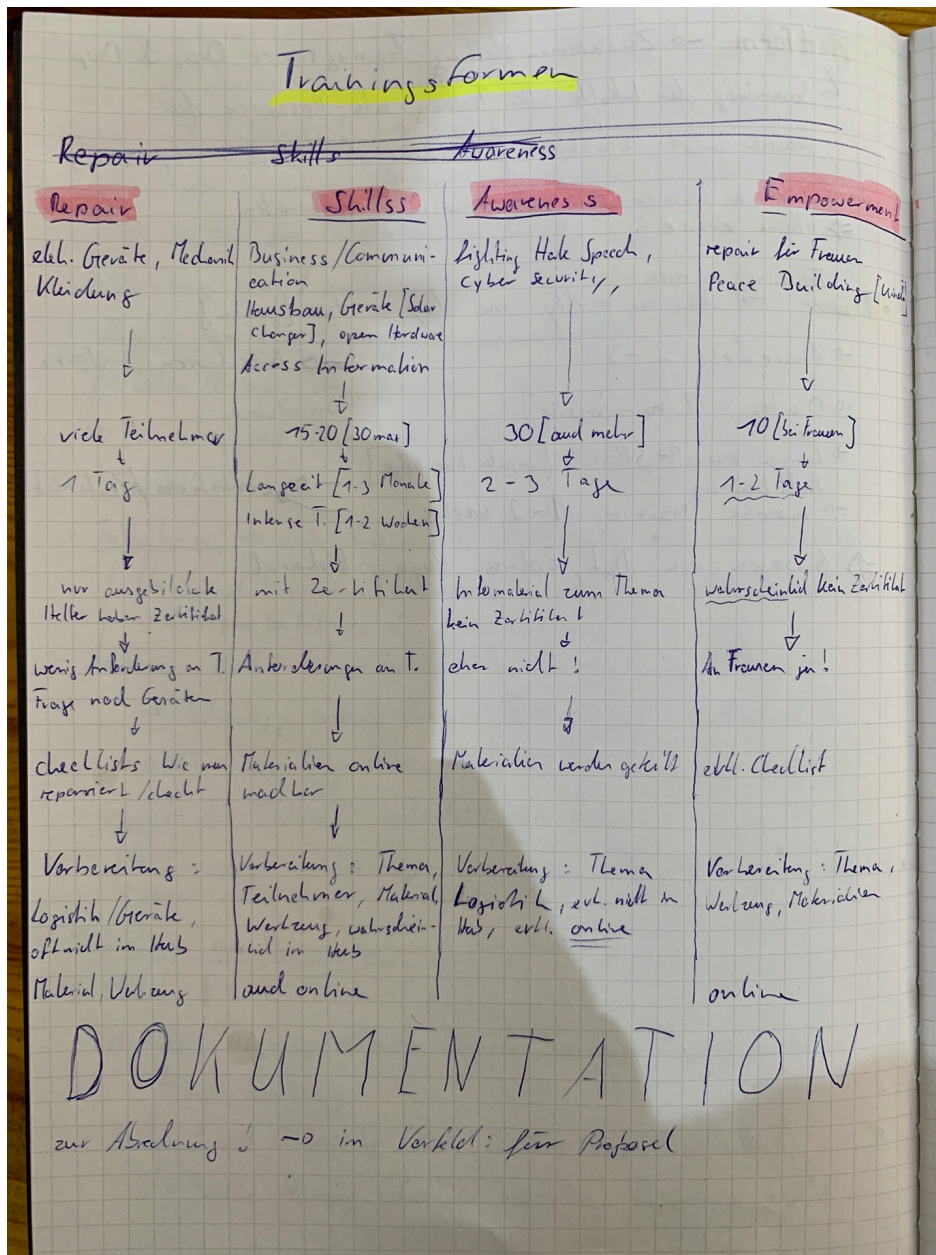 Trainingsformen
Repair Skills Awareness
Repair
elek. Geräte, Mechanik
Kleidung
viele Teilnehmer
1 Tag
nur ausgebildete
Helfer haben Zertifikat
wenig Anforderung an T.
Frage nach Geräten
checklists Wie man
repariert/checkt
Vorbereitung:
Logistik/Geräte,
oft nicht im Hub
Material, Werkzeug
Skillss
Business/Communi-
cation
Hausbau, Geräte [Solar
charger], open Hardware
Access Information
15-20 [30 max]
Langzeit [1-3 Monate]
Intense T. [1-2 Wochen]
mit Zertifikat
Anforderungen an T.
Materialien online
machbar
Vorbereitung: Thema,
Teilnehmer, Material,
Werkzeug, wahrschein-
lich im Hub
auch online
Awareness
fighting Hate Speech,
cyber security,
30 [und mehr]
2-3 Tage
Infomaterial zum Thema
kein Zertifikat
eher nicht!
Materialien werden geteilt
Vorbereitung: Thema
Logistik, evtl. nicht im
Hub, evtl. online
Empowerment
repair für Frauen
Peace Building
10 [bei Frauen]
1-2 Tage
wahrscheinlich kein Zertifikat
An Frauen ja!
evtl. Checklist
Vorbereitung: Thema,
Werkzeug, Materialien
online
DOKUMENTATION
zur Abrechnung! → im Vorfeld: für Proposal